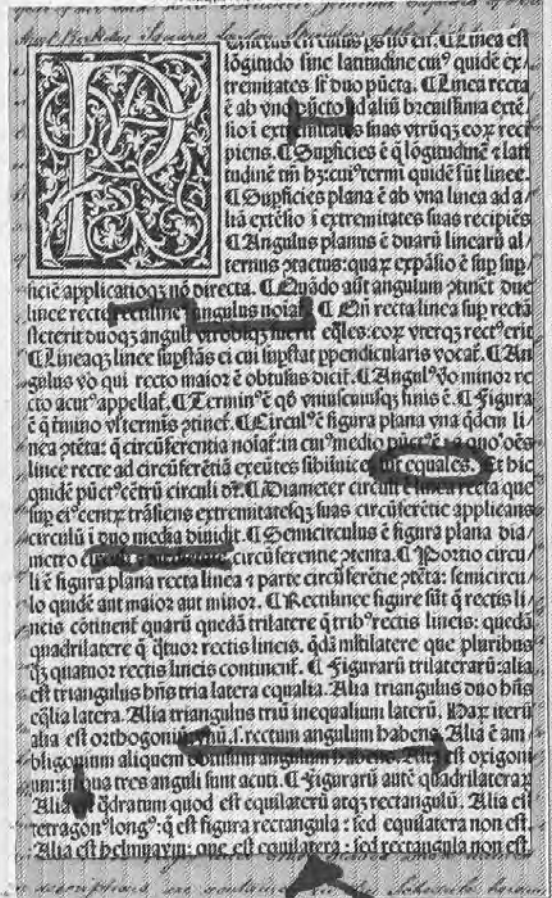 Punctus est cuius ps nō est. ¶ Linea est
lōgitudo sine latitudine cuiꝰ quidē ex/
tremitates sī duo pūcta. ¶ Linea recta
ē ab vno pūcto ad aliū breuissima extē/
sio ī extremitates suas vtrūqꝫ eoꝝ reci
piens. ¶ Supficies ē q̄ lōgitudinē ⁊ lati
tudinē tm̄ hꝫ: cuiꝰ termi quidē sūt linee.
¶ Supficies plana ē ab vna linea ad a/
liā extēsio ī extremitates suas recipiēs
¶ Angulus planus ē duarū linearū al/
ternus ꝯtactus: quaꝝ expāsio ē sup sup/
ficiē applicatioqꝫ nō directa. ¶ Quādo aūt angulum ꝯtinēt due
linee recte rectilineꝰ angulus noīat̄. ¶ Qn̄ recta linea sup rectā
steterit duoqꝫ anguli vtrobiqꝫ fuerīt eq̄les: eoꝝ vterqꝫ rectꝰ erit
¶ Lineaqꝫ linee supstās ei cui supstat ppendicularis vocat̄. ¶ An
gulus v̊o qui recto maior ē obtusus dicit̄. ¶ Angulꝰ v̊o minor re
cto acutꝰ appellat̄. ¶ Terminꝰ ē qd̄ vniuscuiusqꝫ finis ē. ¶ Figura
ē q̄ tmino vl̓ termis ꝯtinet̄. ¶ Circulꝰ ē figura plana vna q̄dem li/
nea ꝯtēta: q̄ circūferentia noīat̄: in cuiꝰ medio pūctꝰ ē: a quo oēs
linee recte ad circūferētiā exeūtes sibiinuicē sūt equales. Et hic
quidē pūctꝰ cētrū circuli dr̄. ¶ Diameter circuli ē linea recta que
sup eiꝰ centꝝ trāsiens extremitatesqꝫ suas circūferētie applicans
circulū ī duo media diuidit. ¶ Semicirculus ē figura plana dia/
metro circuli ⁊ medietate circūferentie ꝯtenta. ¶ Portio circu/
li ē figura plana recta linea ⁊ parte circūferētie ꝯtēta: semicircu/
lo quidē aut maior aut minor. ¶ Rectilinee figure sūt q̄ rectis li/
neis cōtinent̄ quarū quedā trilatere q̄ tribꝰ rectis lineis: quedā
quadrilatere q̄ q̄tuor rectis lineis. qdā mltilatere que pluribus
qꝫ quatuor rectis lineis continent̄. ¶ Figurarū trilaterarū: alia
est triangulus hn̄s tria latera equalia. Alia triangulus duo hn̄s
eq̄lia latera. Alia triangulus triū inequalium laterū. Haꝝ iterū
alia est orthogoniū: vnū .s. rectum angulum habens. Alia ē am/
bligonium aliquem obtusum angulum habens. Alia est oxigoni
um: in qua tres anguli sunt acuti. ¶ Figurarū autē quadrilateraꝝ
Alia est q̄dratum quod est equilaterū atqꝫ rectangulū. Alia est
tetragonꝰ longꝰ: q̄ est figura rectangula: sed equilatera non est.
Alia est helmuaym: que est equilatera: sed rectangula non est.